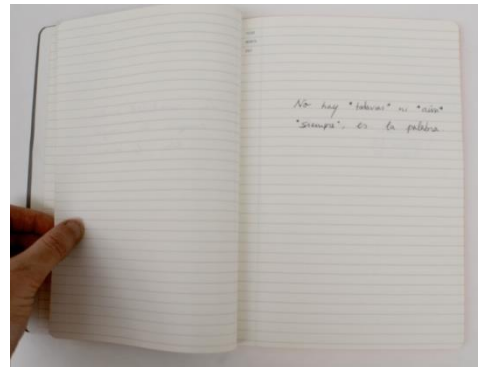 No hay "todavías" ni "aún"
"siempre", es la palabra